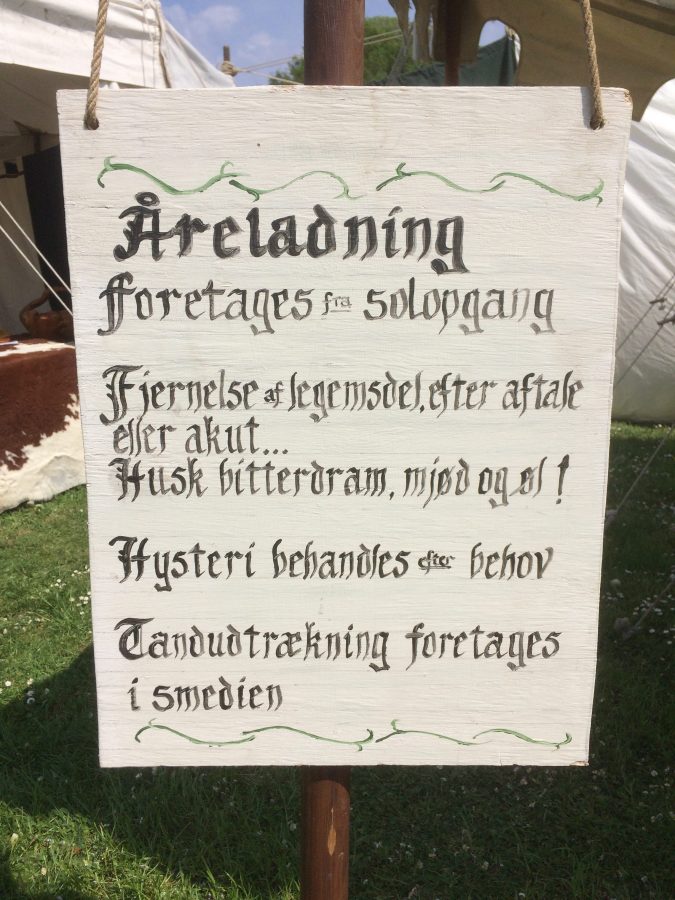 Åreladning
foretages fra solopgang
Fjernelse af legemsdel, efter aftale
eller akut...
Husk bitterdram, mjød og øl!
Hysteri behandles efter behov
Tandudtrækning foretages
i smedien